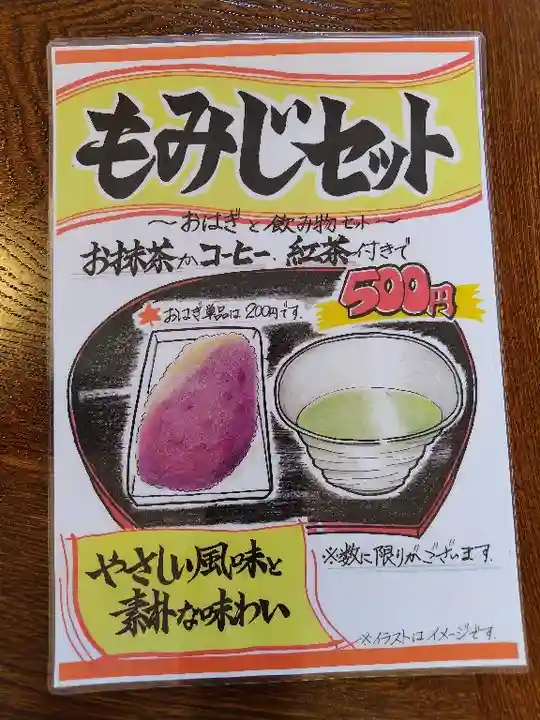 もみじセット
～おはぎと飲み物セット～
お抹茶かコーヒー、紅茶付きで
500円
おはぎ単品は200円です.
やさしい風味と
素朴な味わい
※数に限りがございます.
※イラストはイメージです.